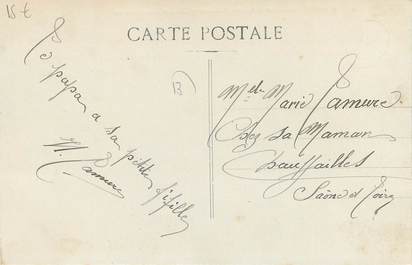 15 €
CARTE POSTALE
B
Le papa a sa petite fifille
Melle Marie Lamure
Chez sa Maman
Chauffailles
Saône et Loire